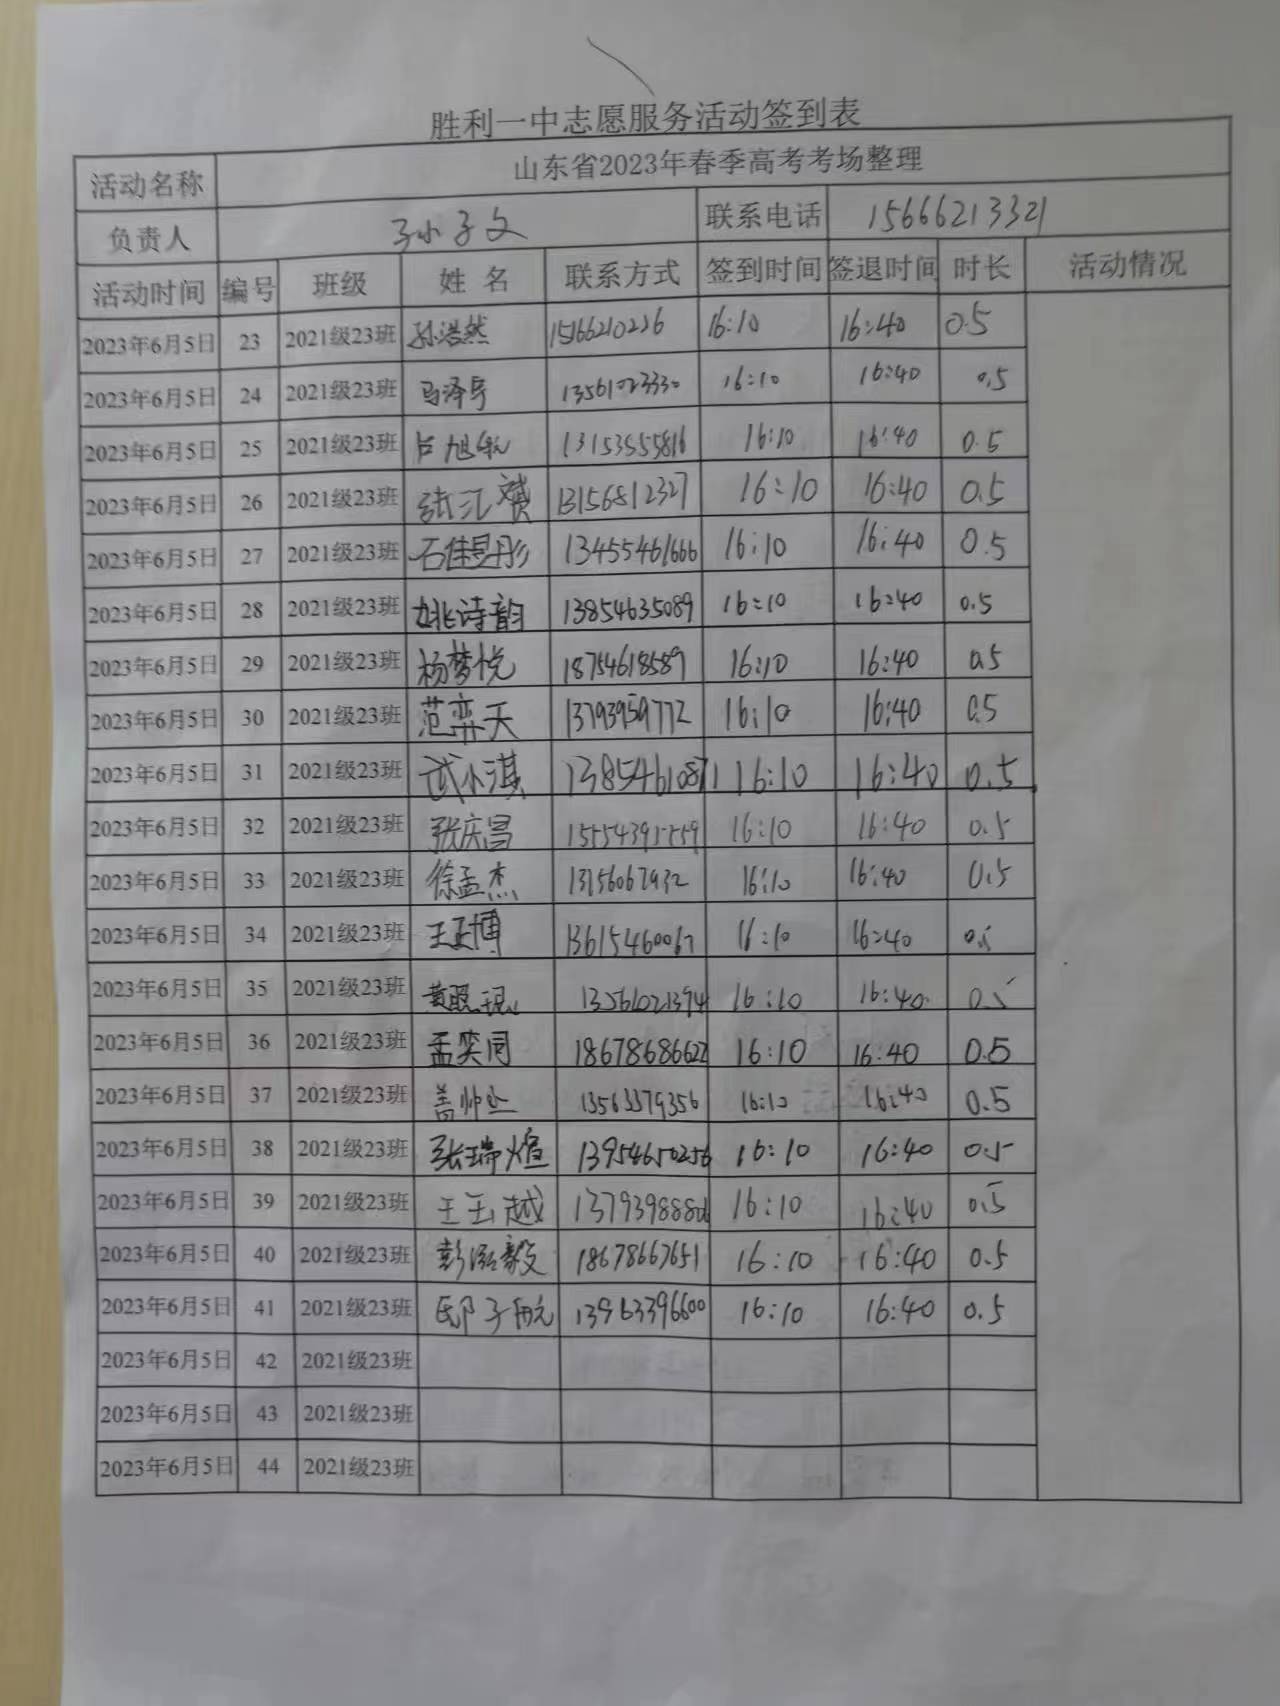 胜利一中志愿服务活动签到表
活动名称 山东省2023年春季高考考场整理
负责人 孙子文 联系电话 15666213321
活动时间 编号 班级 姓名 联系方式 签到时间 签退时间 时长 活动情况
2023年6月5日 23 2021级23班 孙浩然 15166210226 16:10 16:40 0.5
2023年6月5日 24 2021级23班 马泽宇 13561023330 16:10 16:40 0.5
2023年6月5日 25 2021级23班 吕旭航 13153555816 16:10 16:40 0.5
2023年6月5日 26 2021级23班 张汇赟 13156812327 16:10 16:40 0.5
2023年6月5日 27 2021级23班 石佳昱彤 13455461666 16:10 16:40 0.5
2023年6月5日 28 2021级23班 姚诗韵 13854635089 16:10 16:40 0.5
2023年6月5日 29 2021级23班 杨梦悦 18754618589 16:10 16:40 0.5
2023年6月5日 30 2021级23班 范弈天 13793959772 16:10 16:40 0.5
2023年6月5日 31 2021级23班 武小淇 13854610871 16:10 16:40 0.5
2023年6月5日 32 2021级23班 张庆昌 16:10 16:40 0.5
2023年6月5日 33 2021级23班 徐孟杰 13156067932 16:10 16:40 0.5
2023年6月5日 34 2021级23班 王正博 13615460067 16:10 16:40 0.5
2023年6月5日 35 2021级23班 13561021394 16:10 16:40 0.5
2023年6月5日 36 2021级23班 孟笑同 18678686622 16:10 16:40 0.5
2023年6月5日 37 2021级23班 13563379356 16:10 16:40 0.5
2023年6月5日 38 2021级23班 张瑞煊 13954650256 16:10 16:40 0.5
2023年6月5日 39 2021级23班 王玉越 16:10 16:40 0.5
2023年6月5日 40 2021级23班 彭泓毅 18678667651 16:10 16:40 0.5
2023年6月5日 41 2021级23班 13963396600 16:10 16:40 0.5
2023年6月5日 42 2021级23班
2023年6月5日 43 2021级23班
2023年6月5日 44 2021级23班